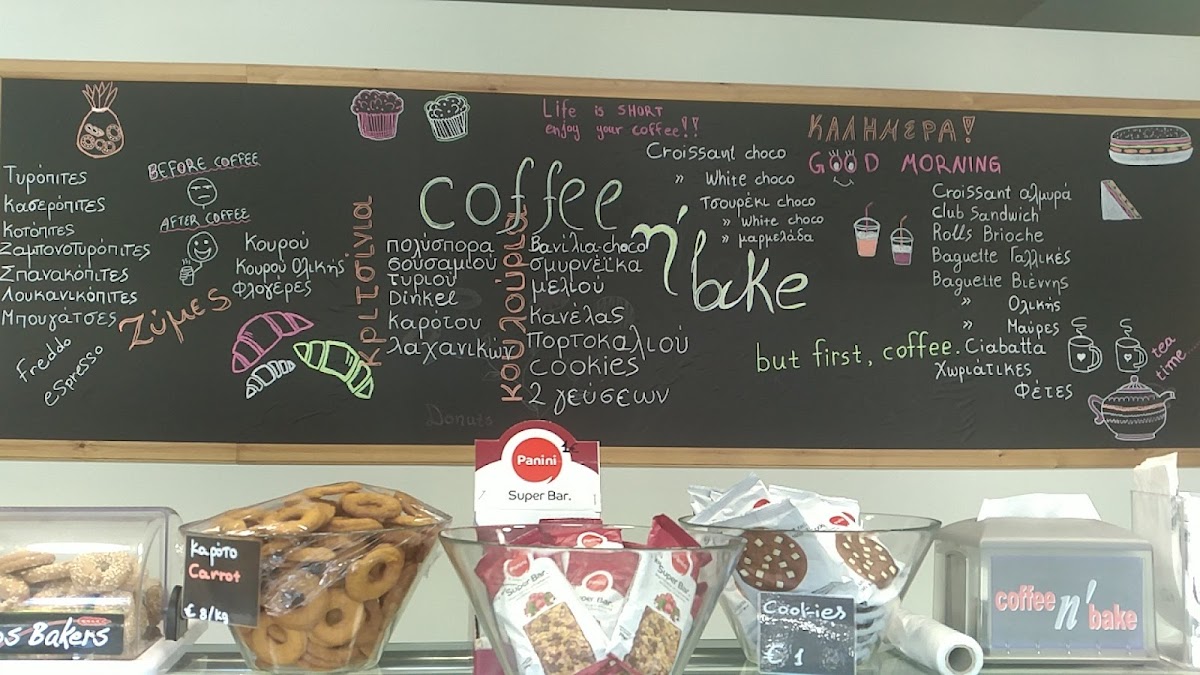 Τυρόπιτες
Κασερόπιτες
Κοτόπιτες
Ζαμπονοτυρόπιτες
Σπανακόπιτες
Λουκανικόπιτες
Μπουγάτσες
Freddo
espresso
BEFORE COFFEE
AFTER COFFEE
Ζύμες
Κουρού
Κουρού Ολικής
Φλογέρες
Κριτσίνια
πολύσπορα
σουσαμιού
τυριού
Dinkel
καρότου
λαχανικών
Κουλούρια
Βανίλια-choco
σμυρνέϊκα
μελιού
κανέλας
Πορτοκαλιού
cookies
2 γεύσεων
Donuts
Life is SHORT
enjoy your coffee!!
coffee
n'
bake
Croissant choco
» White choco
Τσουρέκι choco
» White choco
» μαρμελάδα
ΚΑΛΗΜΕΡΑ!
GOOD MORNING
but first, coffee.
Croissant αλμυρά
Club Sandwich
Rolls Brioche
Baguette Γαλλικές
Baguette Βιέννης
» Ολικής
» Μαύρες
Ciabatta
Χωριάτικες
Φέτες
tea
time
Panini
Super Bar.
1€
os Bakers
Καρότο
Carrot
€ 8/kg
Panini
Super Bar.
Panini
Super Bar.
Panini
Super Bar.
Cookies
€ 1
coffee n' bake